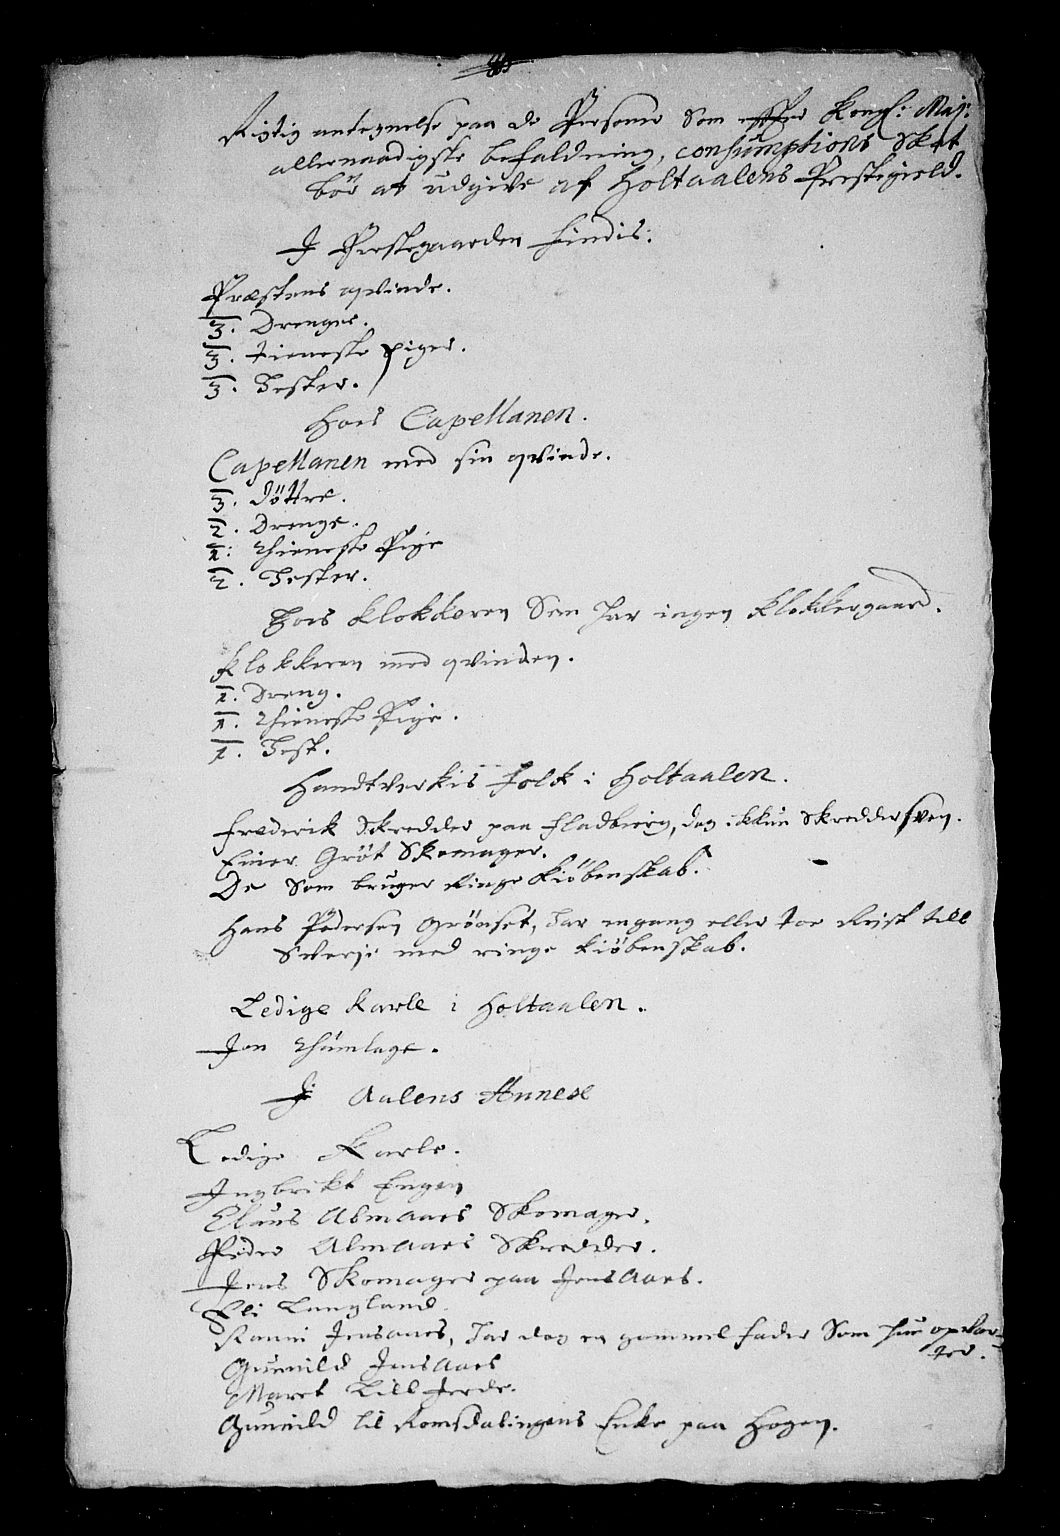 Rigtig antegnelse paa de Personer Som effter Kongl: Maj:
allernaadigste befaldning, consumptions Skat
bør at udgive af Holtaalens Prestegield.
I Prestegaarden findis:
Præstens qvinde.
3. Drenger.
3. tieneste piger.
3. Hester.
Hoes Capellanen.
Capellanen med sin qvinde.
3. døttre.
2. Drenge.
1: Thieneste Pige
2. Hester.
Hoes Klokkeren Som har ingen Klokkergaard.
Klokkeren med qvinden.
1. Dreng.
1. Thieneste Pige.
1. Hest.
Handtverkis folk i Holtaalen.
Frederik Skredder paa Fladbierg, dog ikkun Skreddersven.
Einer Grøt Skomager.
De Som bruger Ringe Kiøbenskab.
Hans Pedersen Grønset, har engang eller toe Reist till
Sverje med ringe kiøbenskab.
Ledige Karle i Holtaalen.
Jon Thumlage.
I Aalens Annex
Ledige Karle.
Ingbrikt Engen
Claus Almaars Skomager.
Peder Almaars Skredder.
Jens Skomager paa JensAars.
Eli Langland
Ranni Jensaars, har dog en gammel fader Som hun opvar-
ter.
Gunnild JensAars
Maret Lill Jerde.
Gunnild til Romsdalingens Enke paa Hogen.